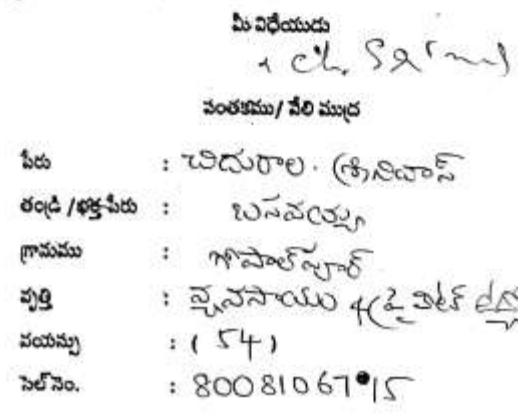 మీ విధేయుడు
ch. Srinu
సంతకము/ వేలి ముద్ర
పేరు : చిదురాల. శ్రీనివాస్
తండ్రి /భర్త పేరు : బసవయ్య
గ్రామము : గోపాల్‌పూర్
వృత్తి : వ్యవసాయం & ప్రైవేట్
వయస్సు : ( 54 )
సెల్ నెం. : 8008106715